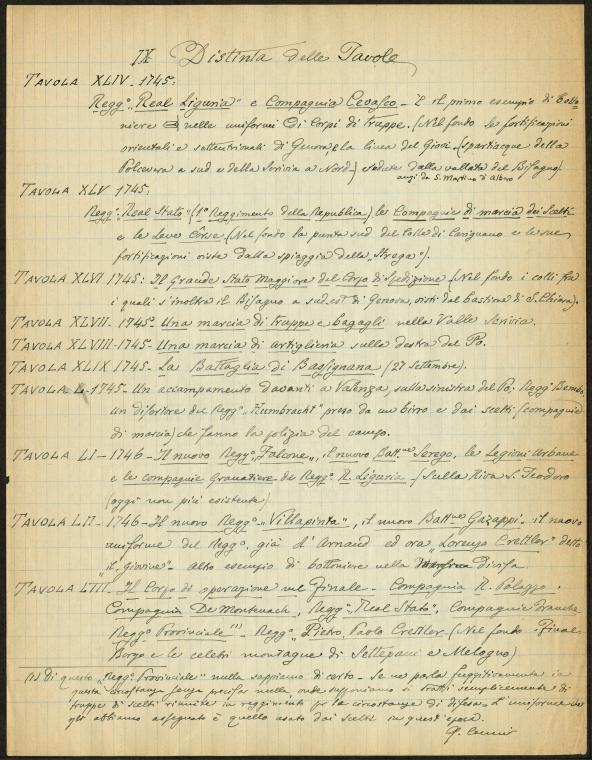 IX Distinta delle Tavole
TAVOLA XLIV - 1745:
Regg.º "Real Liguria" e Compagnia Cevasco - È il primo esempio di botto=
niere nelle uniformi di Corpi di truppe. (Nel fondo le fortificazioni
orientali e settentrionali di Genova, e la linea del Giovi - (spartiacque della
Polcevera a sud e della Scrivia a Nord) vedute dalla vallata del Bisagno)
anzi da S. Martino d'Albaro
TAVOLA XLV 1745:
Regg.º "Real Stato" (1º Reggimento della Repubblica) le Compagnie di marcia dei Scelti
e le Leve Côrse (Nel fondo la punta sud del Colle di Carignano e le sue
fortificazioni viste dalla spiaggia della "Strega").
TAVOLA XLVI 1745: Il Grande Stato Maggiore del Corpo di Spedizione (Nel fondo i colli fra
i quali s'inoltra il Bisagno a sud.est di Genova, visti dal bastione di S. Chiara).
TAVOLA XLVII - 1745 - Una marcia di truppe e bagagli nella Valle Scrivia.
TAVOLA XLVIII - 1745 - Una marcia di artiglieria sulla destra del Po.
TAVOLA XLIX 1745 - La Battaglia di Bassignana (27 Settembre).
TAVOLA L - 1745 - Un accampamento davanti a Valenza, sulla sinistra del Po; Regg.º Bembo,
un disertore del Regg.º "Zumbracht" preso da un birro e dai scelti (compagnie
di marcia) che fanno la polizia del campo.
TAVOLA LI - 1746 - Il nuovo Regg.º "Falcone", il nuovo Batt.ne Serego, le Legioni Urbane
e le compagnie Granatiere de Regg.º R. Liguria - (Sulla Riva S. Teodoro
(oggi non più esistente)
TAVOLA LII - 1746 - Il nuovo Regg.º "Villapinta", il nuovo Batt.ne Gazappi - il nuovo
uniforme del Regg.º già d'Arnaud ed ora "Lorenzo Crettler" detto
"il Giovine" - altro esempio di bottoniere nella divisa.
TAVOLA LIII. Il Corpo di operazione nel Finale - Compagnia R. Palazzo -
Compagnia De Montenach, Regg.º "Real Stato", Compagnie franche
Regg.º Provinciale (1) - Regg.º Pietro Paolo Crettler - (Nel fondo - Final
Borgo e le celebri montagne di Settepani e Melogno)
(1) Di questo "Regg.º Provinciale" nulla sappiamo di certo - Se ne parla fuggitivamente in
questa circostanza senza precisar nulla, onde supponiamo si tratti semplicemente di
truppe di scelti riunite in reggimenti per la circostanza di difesa. L'uniforme che
gli abbiamo assegnato è quello usato dai scelti in quest'epoca.